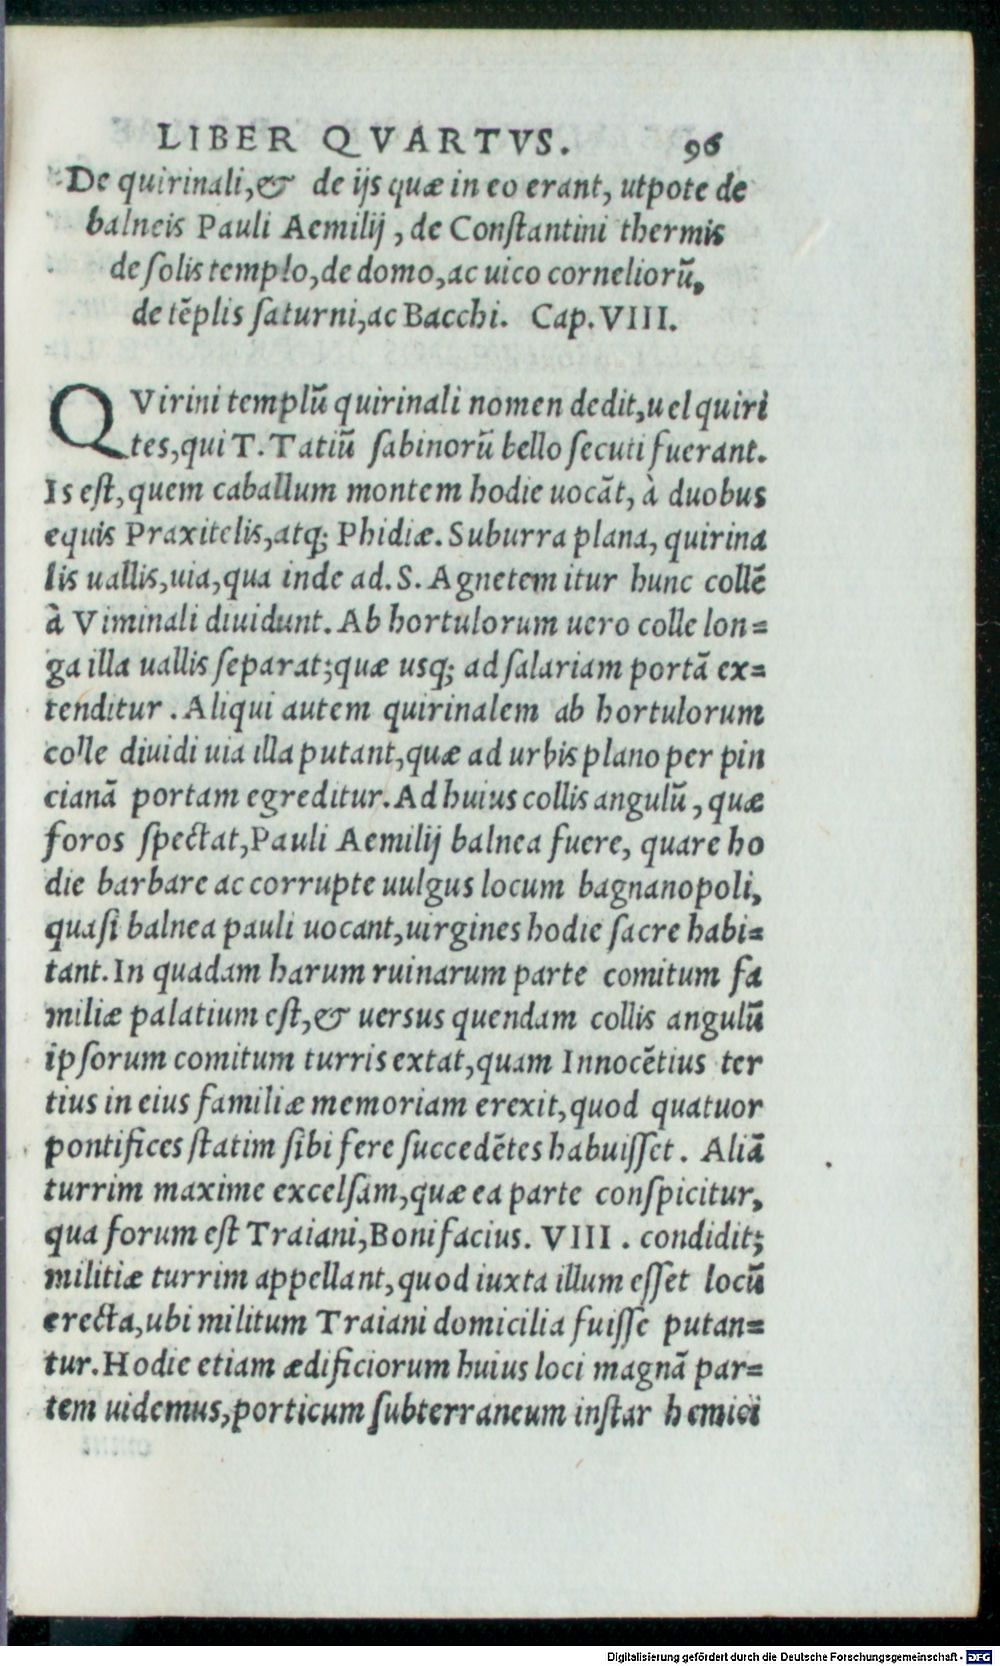 LIBER QVARTVS. 96
De quirinali,& de ijs quæ in eo erant, utpote de
balneis Pauli Aemilij, de Constantini thermis
de solis templo, de domo, ac uico corneliorũ,
de tẽplis saturni, ac Bacchi. Cap. VIII.
QVirini templũ quirinali nomen dedit, uel quiri
tes, qui T. Tatiũ sabinorũ bello secuti fuerant.
Is est, quem caballum montem hodie uocãt, à duobus
equis Praxitelis, atq; Phidiæ. Suburra plana, quirina
lis uallis, uia, qua inde ad. S. Agnetem itur hunc collẽ
à Viminali diuidunt. Ab hortulorum uero colle lon=
ga illa uallis separat; quæ usq; ad salariam portã ex=
tenditur. Aliqui autem quirinalem ab hortulorum
colle diuidi uia illa putant, quæ ad urbis plano per pin
cianã portam egreditur. Ad huius collis angulũ, quæ
foros spectat, Pauli Aemilij balnea fuere, quare ho
die barbare ac corrupte uulgus locum bagnanopoli,
quasi balnea pauli uocant, uirgines hodie sacre habi=
tant. In quadam harum ruinarum parte comitum fa
miliæ palatium est, & uersus quendam collis angulũ
ipsorum comitum turris extat, quam Innocẽtius ter
tius in eius familiæ memoriam erexit, quod quatuor
pontifices statim sibi fere succedẽtes habuisset. Aliã
turrim maxime excelsam, quæ ea parte conspicitur,
qua forum est Traiani, Bonifacius. VIII. condidit;
militiæ turrim appellant, quod iuxta illum esset locũ
erecta, ubi militum Traiani domicilia fuisse putan=
tur. Hodie etiam ædificiorum huius loci magnã par=
tem uidemus, porticum subterraneum instar hemici
Digitalisierung gefördert durch die Deutsche Forschungsgemeinschaft - DFG